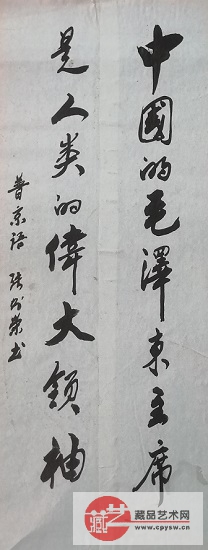 中國的毛澤東主席
是人类的偉大領袖
普京语 张荣书
藏艺
藏品艺术网
www.cpysw.cn